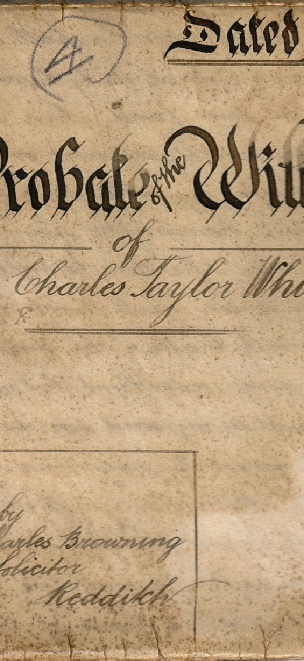 4
Dated
Probate of the Will
of
Charles Taylor Whi
by
arles Browning
Solicitor
Redditch